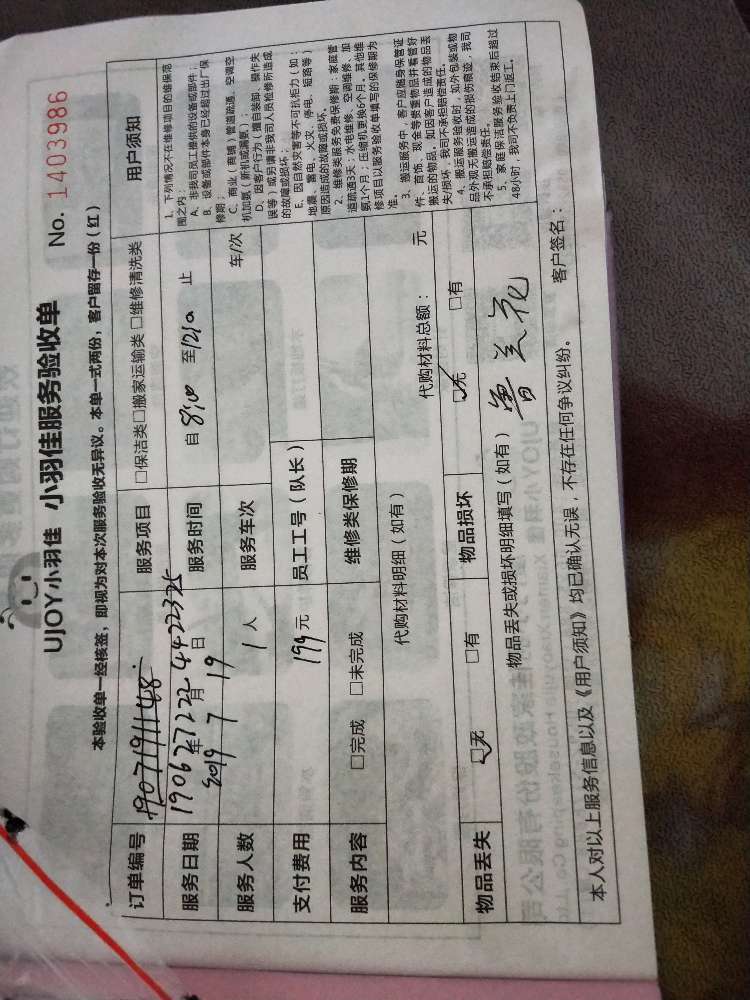 UJOY小羽佳 小羽佳服务验收单 No. 1403986
本验收单一经核签，即视为对本次服务验收无异议。本单一式两份，客户留存一份（红）
订单编号 1907191148 服务项目 □保洁类□搬家运输类 □维修清洗类 用户须知
190627222 4422325
服务日期 2019年7月19日 服务时间 自8:00 至1210 止
服务人数 1人 服务车次 车/次
支付费用 199元 员工工号（队长）
服务内容 □完成 □未完成 维修类保修期
1、下列情况不在维修项目的维保范
围之内：
A、非我司员工提供的设备或部件；
B、设备或部件本身已经超过出厂保
修期；
C、商业（商铺）管道疏通、空调空
机加氨（新机或漏氨）；
D、因客户行为（擅自装卸、操作失
误等）或另请非我司人员检修所造成
的故障或损坏；
E、因自然灾害等不可抗拒力（如：
地震、雷电、火灾、停电、短路等）
原因造成的故障或损坏。
2、维修类服务免费保修期：家庭管
道疏通3天；水电维修、空调维修、加
氨1个月；压缩机更换6个月，其他维
修项目以服务验收单填写的保修期为
准。
3、搬运服务中，客户应随身保管证
件、首饰、现金等贵重物品并看管好
搬运的物品，如因客户造成的物品丢
失/损坏，我司不承担赔偿责任。
4、搬运服务验收时，如外包装或物
品外观无搬运造成的损伤痕迹，我司
不承担赔偿责任。
5、家庭保洁服务验收结束后超过
48小时，我司不负责上门返工。
代购材料明细（如有） 代购材料总额： 元
物品丢失 □无 □有 物品损坏 □无 □有
物品丢失或损坏明细填写（如有）
本人对以上服务信息以及《用户须知》均已确认无误，不存在任何争议纠纷。 客户签名：